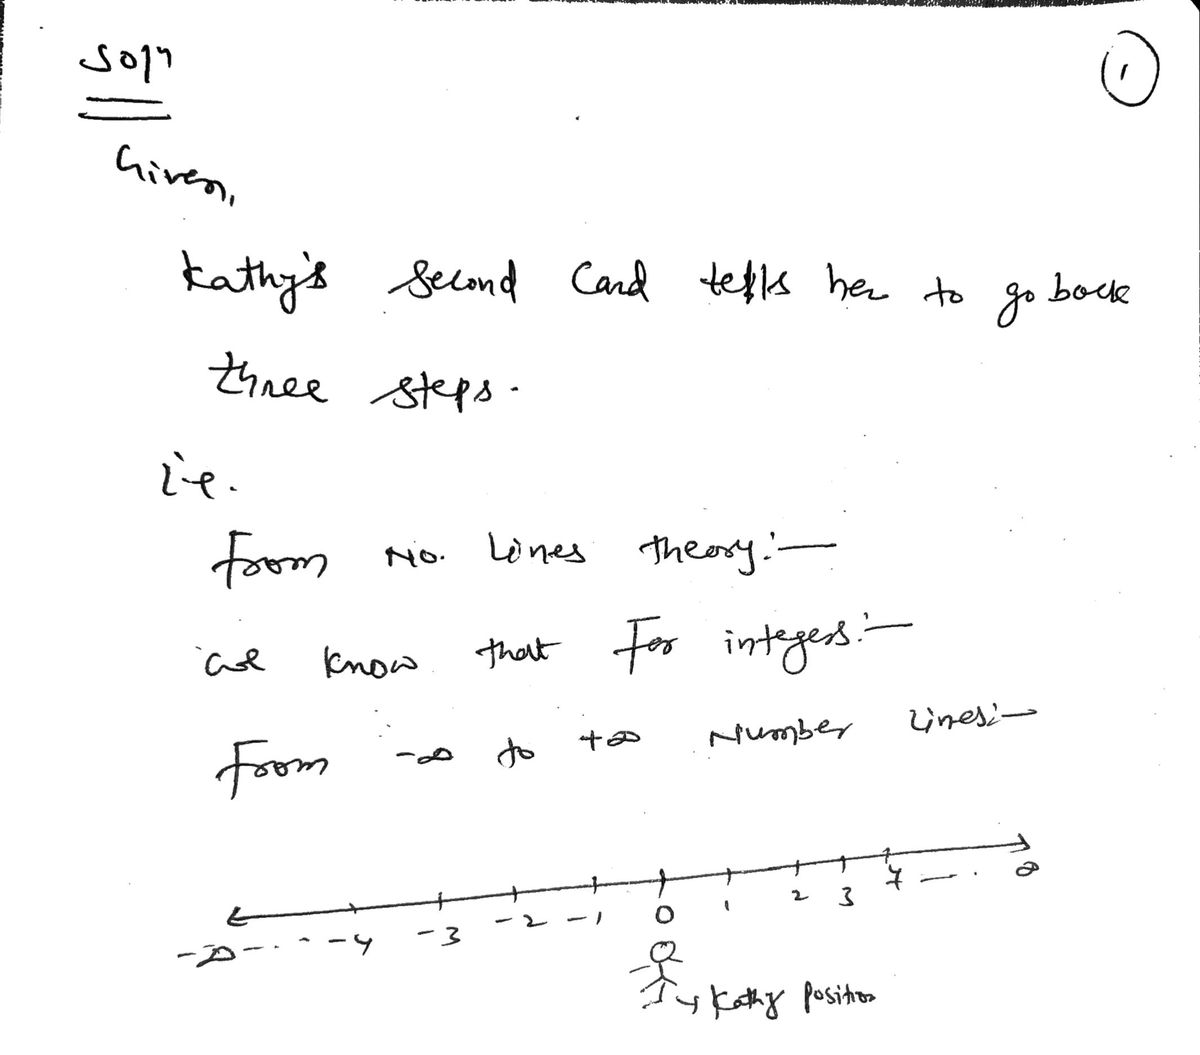 Soln
1
Given,
Kathy's second card tells her to go back
three steps.
i.e.
From No. Lines theory:—
we know that For integers:—
From -∞ to +∞ Number Lines:—
-∞ - . - -4 -3 -2 -1 0 1 2 3 4 — . ∞
Kathy position